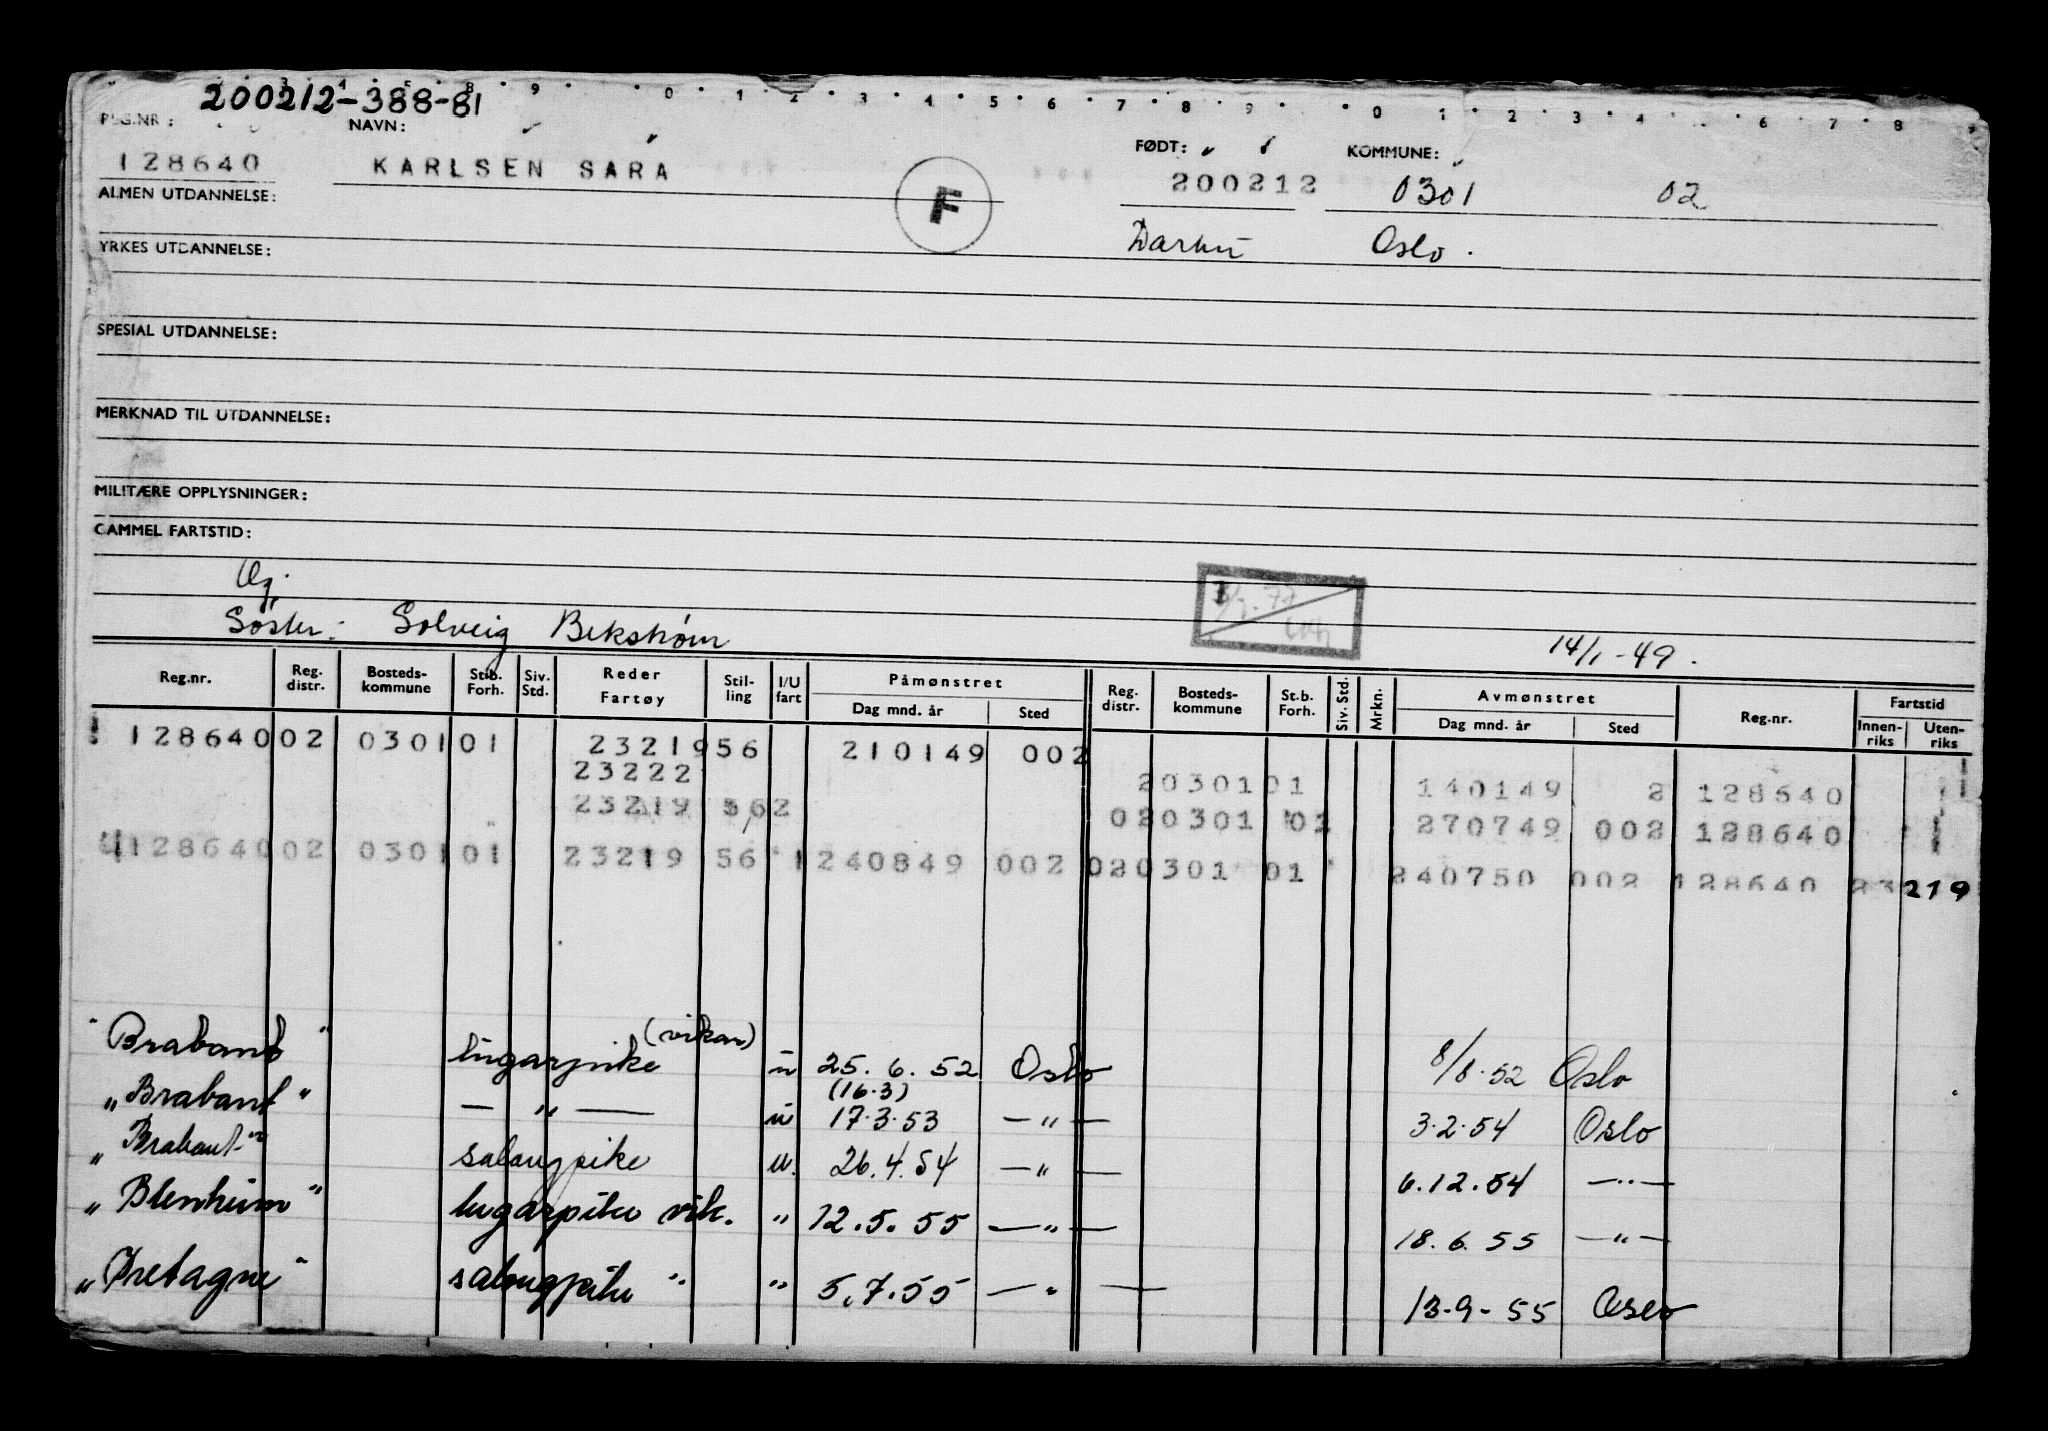 200212-388-81
REG.NR: NAVN: FØDT: KOMMUNE:
128640 KARLSEN SARA F 200212 0301 02
ALMEN UTDANNELSE:
Oslo.
YRKES UTDANNELSE:
SPESIAL UTDANNELSE:
MERKNAD TIL UTDANNELSE:
MILITÆRE OPPLYSNINGER:
GAMMEL FARTSTID:
Søster: Solveig Bekstrøm 14/1-49.
Reg.nr. Reg. distr. Bosteds-kommune St.b. Forh. Siv. Std. Reder Fartøy Stil-ling I/U fart Påmønstret Dag mnd. år Sted Reg. distr. Bosteds-kommune St.b. Forh. Siv. Std. Mrkn. Avmønstret Dag mnd. år Sted Reg.nr. Fartstid Innen-riks Uten-riks
128640 02 0301 01 23219 56 210149 002
23222 2 0301 01 140149 2 128640
23219 562 02 0301 01 270749 002 128640
128640 02 0301 01 23219 56 1 240849 002 02 0301 01 240750 002 128640 23 219
"Brabant" lugarpike (vikar) u 25.6.52 Oslo 8/8.52 Oslo
(16.3)
"Brabant" — " — u 17.3.53 — " — 3.2.54 Oslo
"Brabant" salongpike u. 26.4.54 — " — 6.12.54 — " —
"Blenheim" lugarpike vik. " 12.5.55 — " — 18.6.55 — " —
"Bretagne" salongpike " " 5.7.55 — " — 13-9-55 Oslo